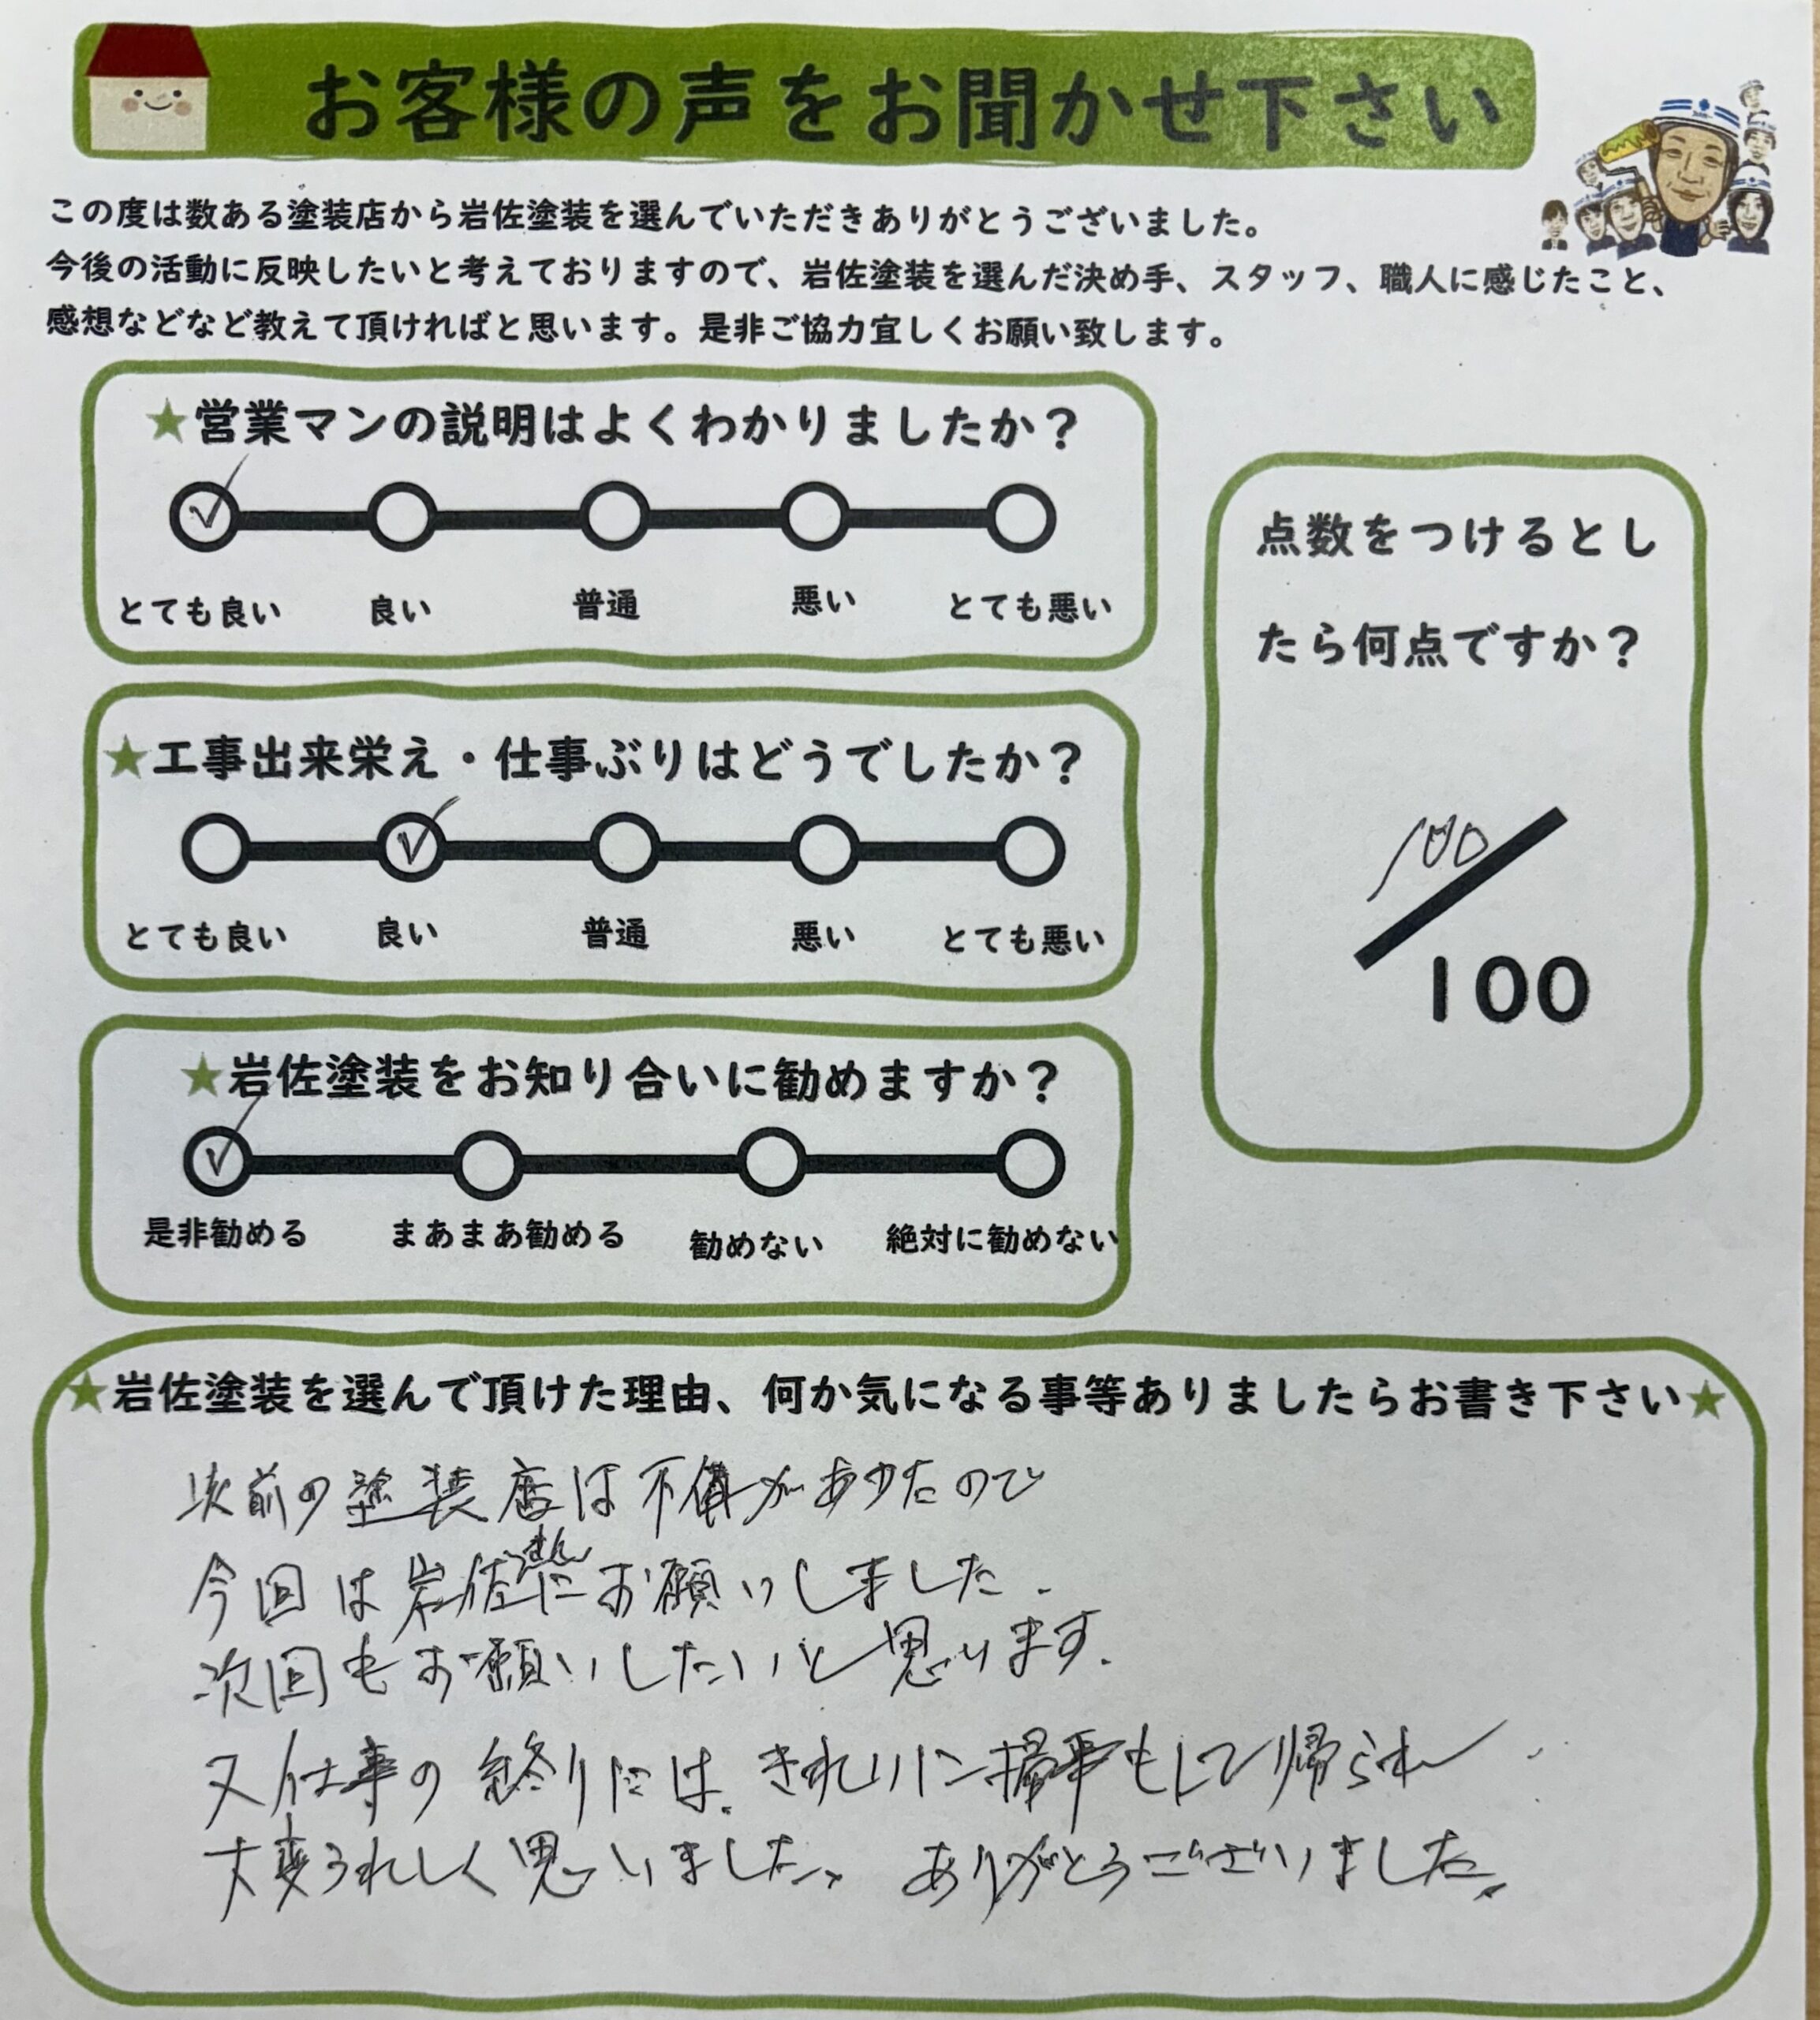 お客様の声をお聞かせ下さい
この度は数ある塗装店から岩佐塗装を選んでいただきありがとうございました。
今後の活動に反映したいと考えておりますので、岩佐塗装を選んだ決め手、スタッフ、職人に感じたこと、
感想などなど教えて頂ければと思います。是非ご協力宜しくお願い致します。
★営業マンの説明はよくわかりましたか？
とても良い 良い 普通 悪い とても悪い
★工事出来栄え・仕事ぶりはどうでしたか？
とても良い 良い 普通 悪い とても悪い
★岩佐塗装をお知り合いに勧めますか？
是非勧める まあまあ勧める 勧めない 絶対に勧めない
点数をつけるとし
たら何点ですか？
100
100
★岩佐塗装を選んで頂けた理由、何か気になる事等ありましたらお書き下さい★
以前の塗装店は不備があったので
今回は岩佐さんにお願いしました.
次回もお願いしたいと思います.
又仕事の終りには、きれいに掃事もして帰られ
大変うれしく思いました。ありがとうございました。